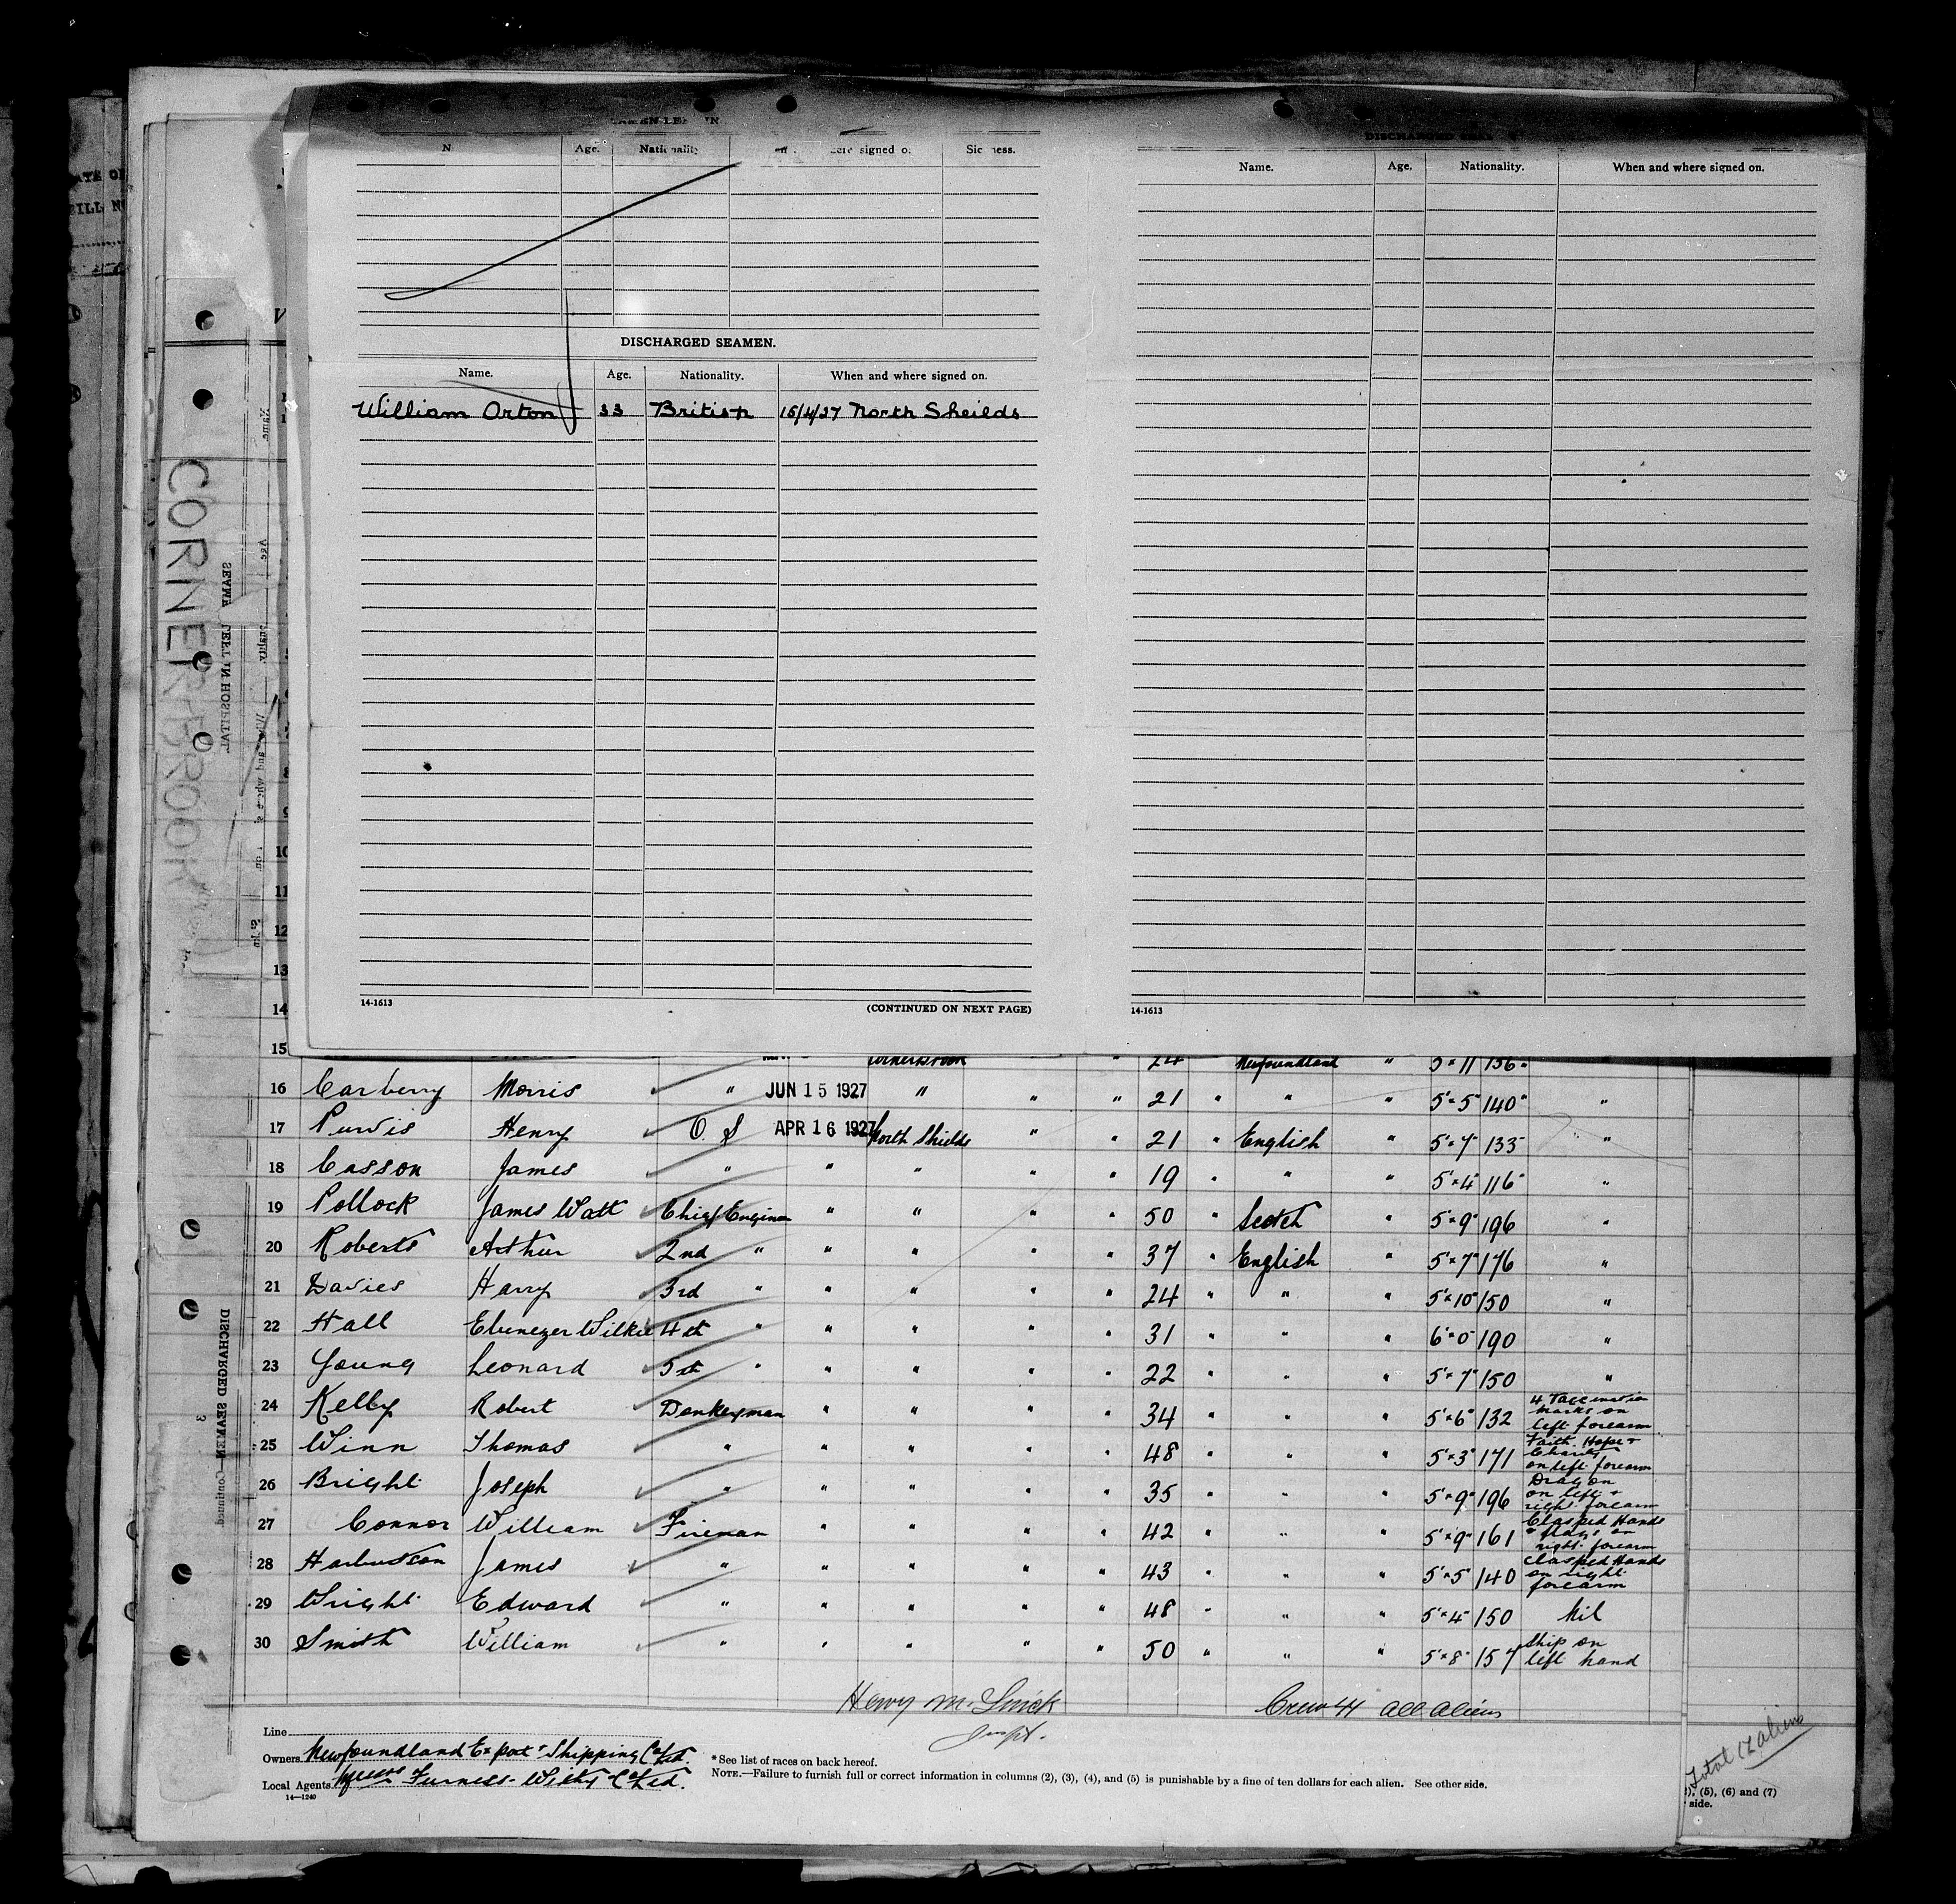 Age. Nationality signed o Sickness.
DISCHARGED SEAMEN.
Name. Age. Nationality. When and where signed on.
William Orton 33 British 15/4/27 North Sheilds
14-1613 (CONTINUED ON NEXT PAGE)
DISCHARGED SEAMEN
Name. Age. Nationality. When and where signed on.
14-1613
CORNER BROOK
SEAMEN LEFT IN HOSPITAL
DISCHARGED SEAMEN—Continued
3
10
11
12
13
14
15 Cornerbrook " 24 Newfoundland " 5"11 156"
16 Carberry Morris " JUN 15 1927 " " " 21 " " " 5"5" 140" "
17 Purvis Henry O. S APR 16 1927 North Shields " " 21 " English " 5"7" 133" "
18 Casson James " " " " " 19 " " " 5"4" 116" "
19 Pollock James Watt Chief Engineer " " " " 50 " Scotch " 5"9" 196 "
20 Roberts Arthur 2nd " " " " " 37 " English " 5"7" 176 "
21 Davies Harry 3rd " " " " " 24 " " " 5"10" 150 "
22 Hall Ebenezer Wilkie 4th " " " " " 31 " " " 6"0" 190 "
23 Young Leonard 5th " " " " " 22 " " " 5"7" 150 "
24 Kelly Robert Donkeyman " " " " 34 " " " 5"6" 132 4 Vaccination marks on left forearm
25 Winn Thomas " " " " " 48 " " " 5"3" 171 Faith Hope + Charity on left forearm
26 Bright Joseph " " " " " 35 " " " 5"9" 196 Dragon on left + right forearm
27 Connor William Fireman " " " " 42 " " " 5"9" 161 Clasped Hands + flags on right forearm
28 James " " " " " 43 " " " 5"5" 140 Clasped Hands on right forearm
29 Wright Edward " " " " " 48 " " " 5"4" 150 Nil
30 Smith William " " " " " 50 " " " 5"8" 157 Ship on left hand
Crew 44 all aliens
Line
Owners Newfoundland Export + Shipping Co Ltd.
Local Agents Furness-Withy Co Ltd.
14—1240
*See list of races on back hereof.
NOTE.—Failure to furnish full or correct information in columns (2), (3), (4), and (5) is punishable by a fine of ten dollars for each alien. See other side.
Total aliens
(5), (6) and (7)
side.